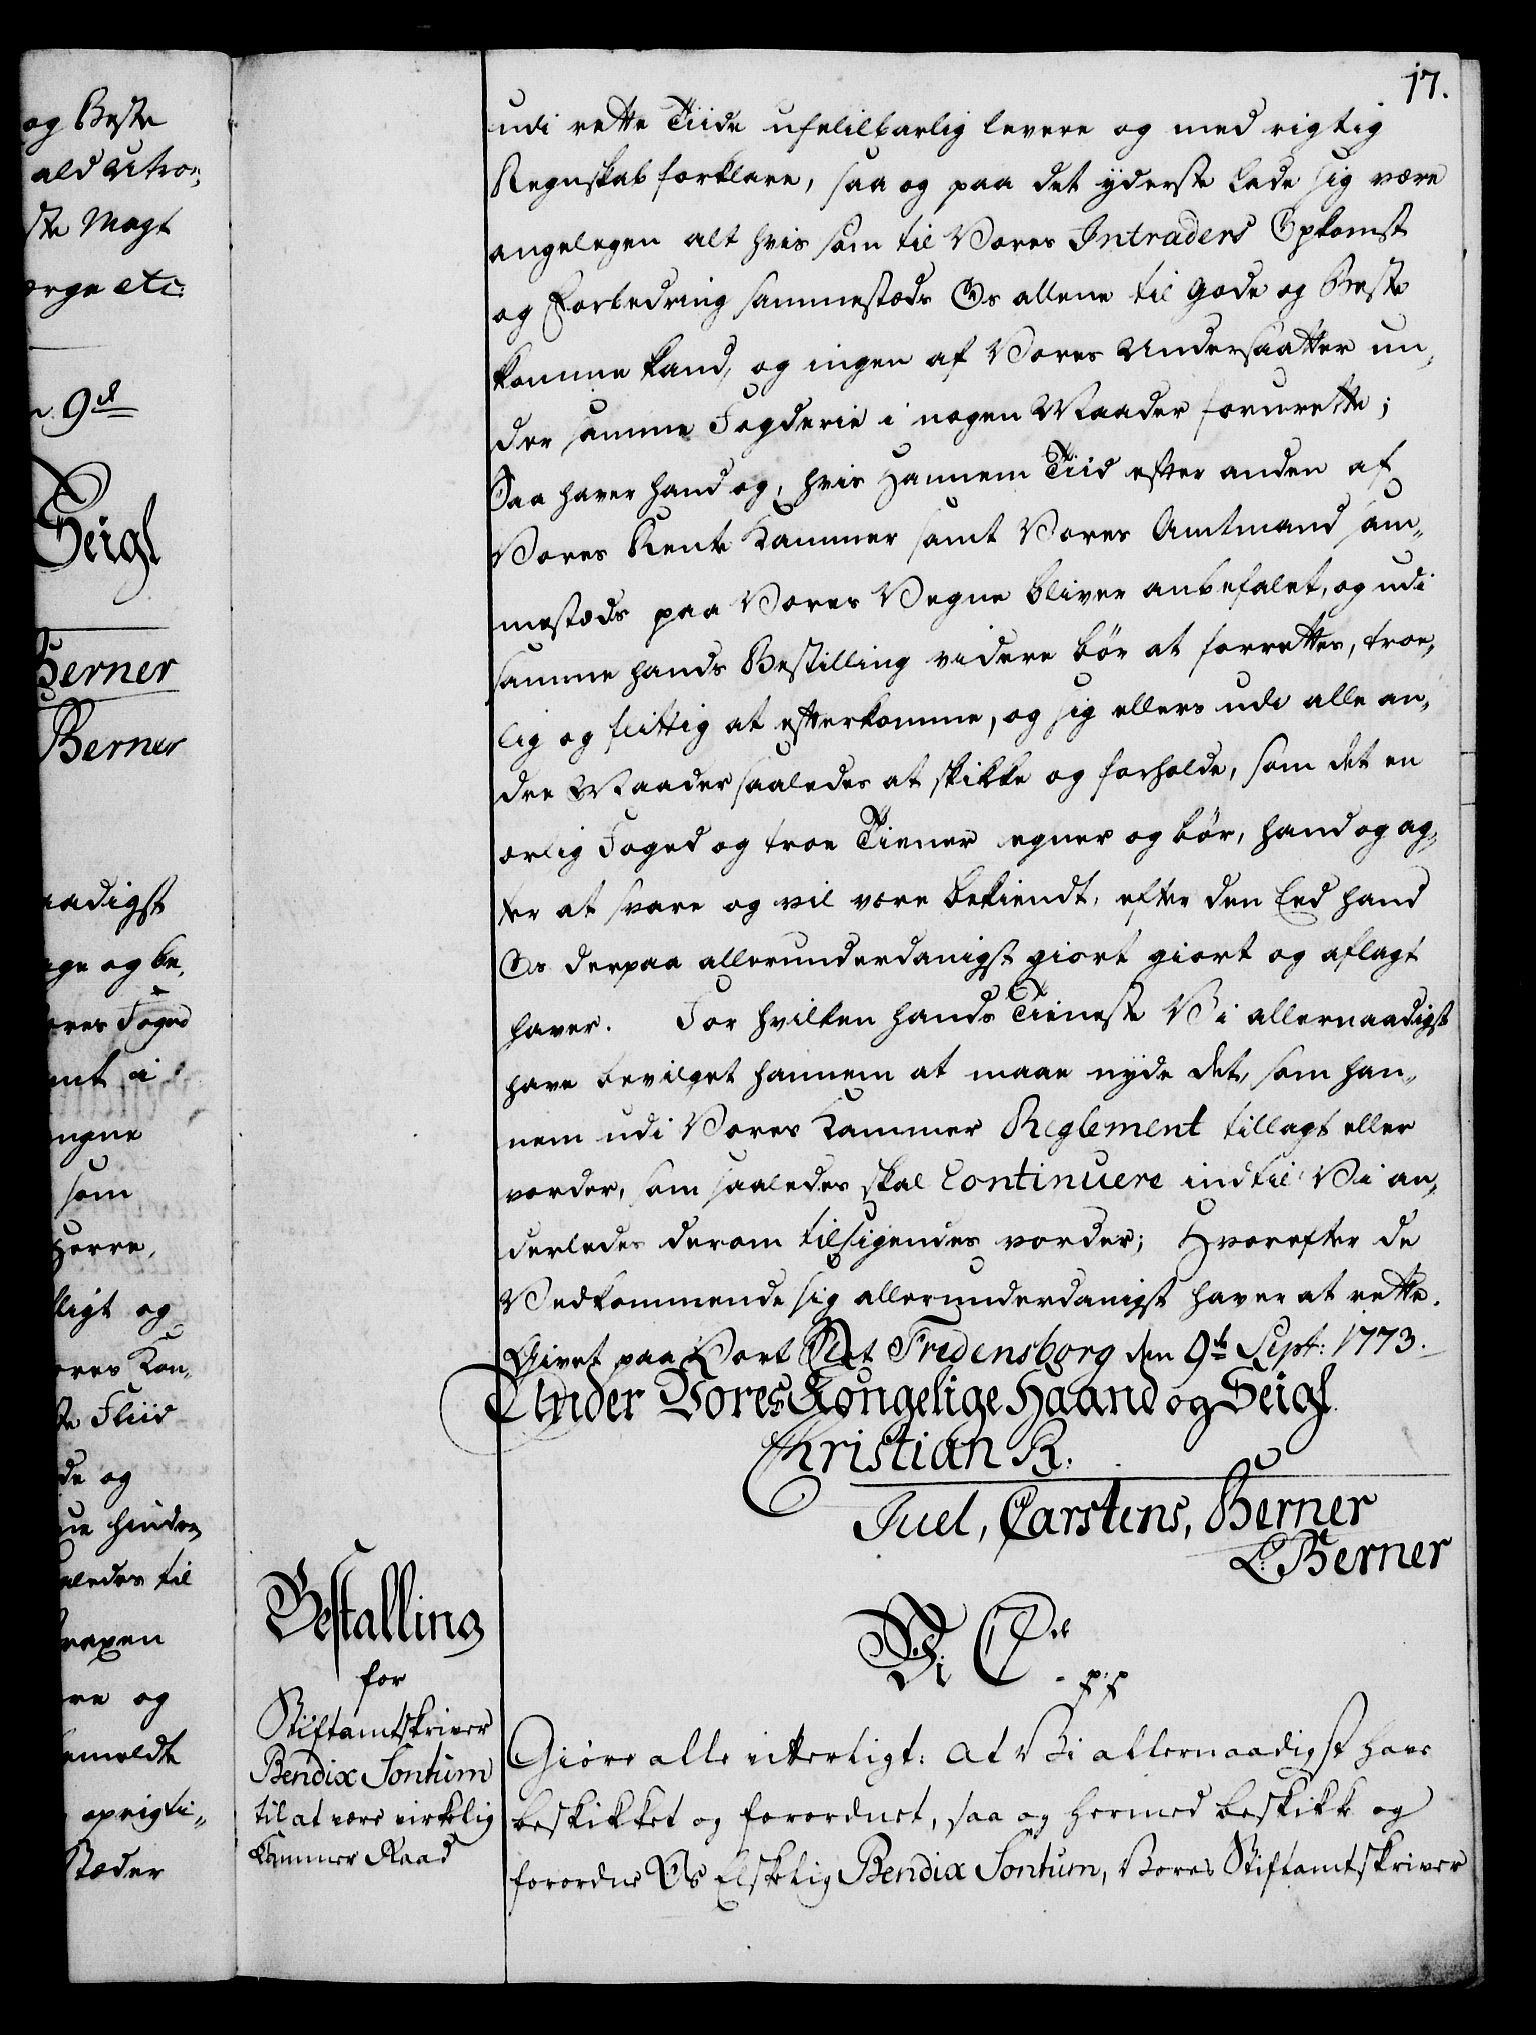 17.
udi rette Tiide ufeilbarlig levere og med rigtig
Regnskab forklare, saa og paa det yderste lade sig være
angelegen alt hvis som til Vores Intraders Opkomst
og Forbedring sammestæds Os allene til Gode og Beste
komme kand, og ingen af Vores Undersaatter un,,
der samme Fogderie i nogen Maader forurette;
Saa haver hand og, hvis Hannem Tiid efter anden af
Vores Rente Kammer samt Vores Amtmand sam,,
mestæds paa Vores Vegne bliver anbefalet, og udi
samme hands Bestilling videre bör at forrettes, troe,,
lig og flittig at efterkomme, og sig ellers udi alle an,,
dre Maader saaledes at skikke og forholde, som det en
ærlig Foged og troe Tiener egner og bör, hand og ag,,
ter at svare og vil være bekiendt, efter den Eed hand
Os derpaa allerunderdanigst giort giort og aflagt
haver. For hvilken hands Tieneste Vi allernaadigst
have bevilget hannem at maae nyde det, som han,,
nem udi Vores Kammer Reglement tillagt eller
vorder, som saaledes skal Continuere indtil Vi an,,
derledes derom tilsigendes vorder; Hvorefter de
Vedkommende sig allerunderdanigst haver at rette.
Givet paa Vort Slot Fredensborg den 9de Sept: 1773.
Under Vores Kongelige Haand og Seigl.
Christian R.
Juel, Carstens, Berner
L: Berner
Bestalling
for
Stiftamtskriver
Bendix Sontum
til at være virkelig
Kammer Raad
Vi C de - p:p
Giöre alle vitterligt: At Vi allernaadigst have
beskikket og forordnet, saa og hermed beskikke og
forordne Os Elskelig Bendix Sontum, Vores Stiftamtskriver
og Beste
ald Utroe,,
ste Magt
orge etc:
9de
Seigl
Berner
Berner
aadigst
age og be,,
ores Foged
amt i
som
Herre,
ligt og
ores Kon,,
ste Fliid
de og
ue hindre,,
aledes til
ere og
emeldte
oprigti,,
Stæder